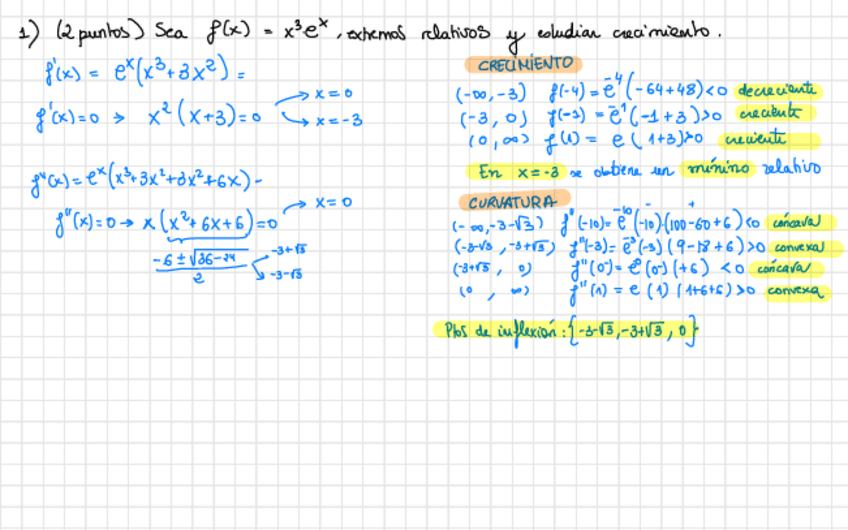 1) (2 puntos) Sea f(x) = x³eˣ, extremos relativos y estudiar crecimiento.
f'(x) = eˣ(x³+3x²) =
f'(x)=0 → x²(x+3)=0
x=0
x=-3
f''(x)=eˣ(x³+3x²+3x²+6x)-
f''(x)=0→ x(x²+6x+6)=0
x=0
-6±√36-24
2
-3+√3
-3-√3
CRECIMIENTO
(-∞,-3) f(-4)=e⁻⁴(-64+48)<0 decreciente
(-3, 0) f(-1) = e⁻¹(-1+3)>0 creciente
(0, ∞) f(1) = e(1+3)>0 creciente
En x=-3 se obtiene un mínino relativo
CURVATURA
(-∞,-3-√3) f''(-10)= e⁻¹⁰(-10)(100-60+6)<0 cóncava
(-3-√3, -3+√3) f''(-3)= e⁻³(-3)(9-18+6)>0 convexa
(-3+√3, 0) f''(0⁻)= e⁰(0⁻)(+6) <0 cóncava
(0, ∞) f''(1) = e(1)(1+6+6)>0 convexa
Ptos de inflexión: {-3-√3,-3+√3, 0}